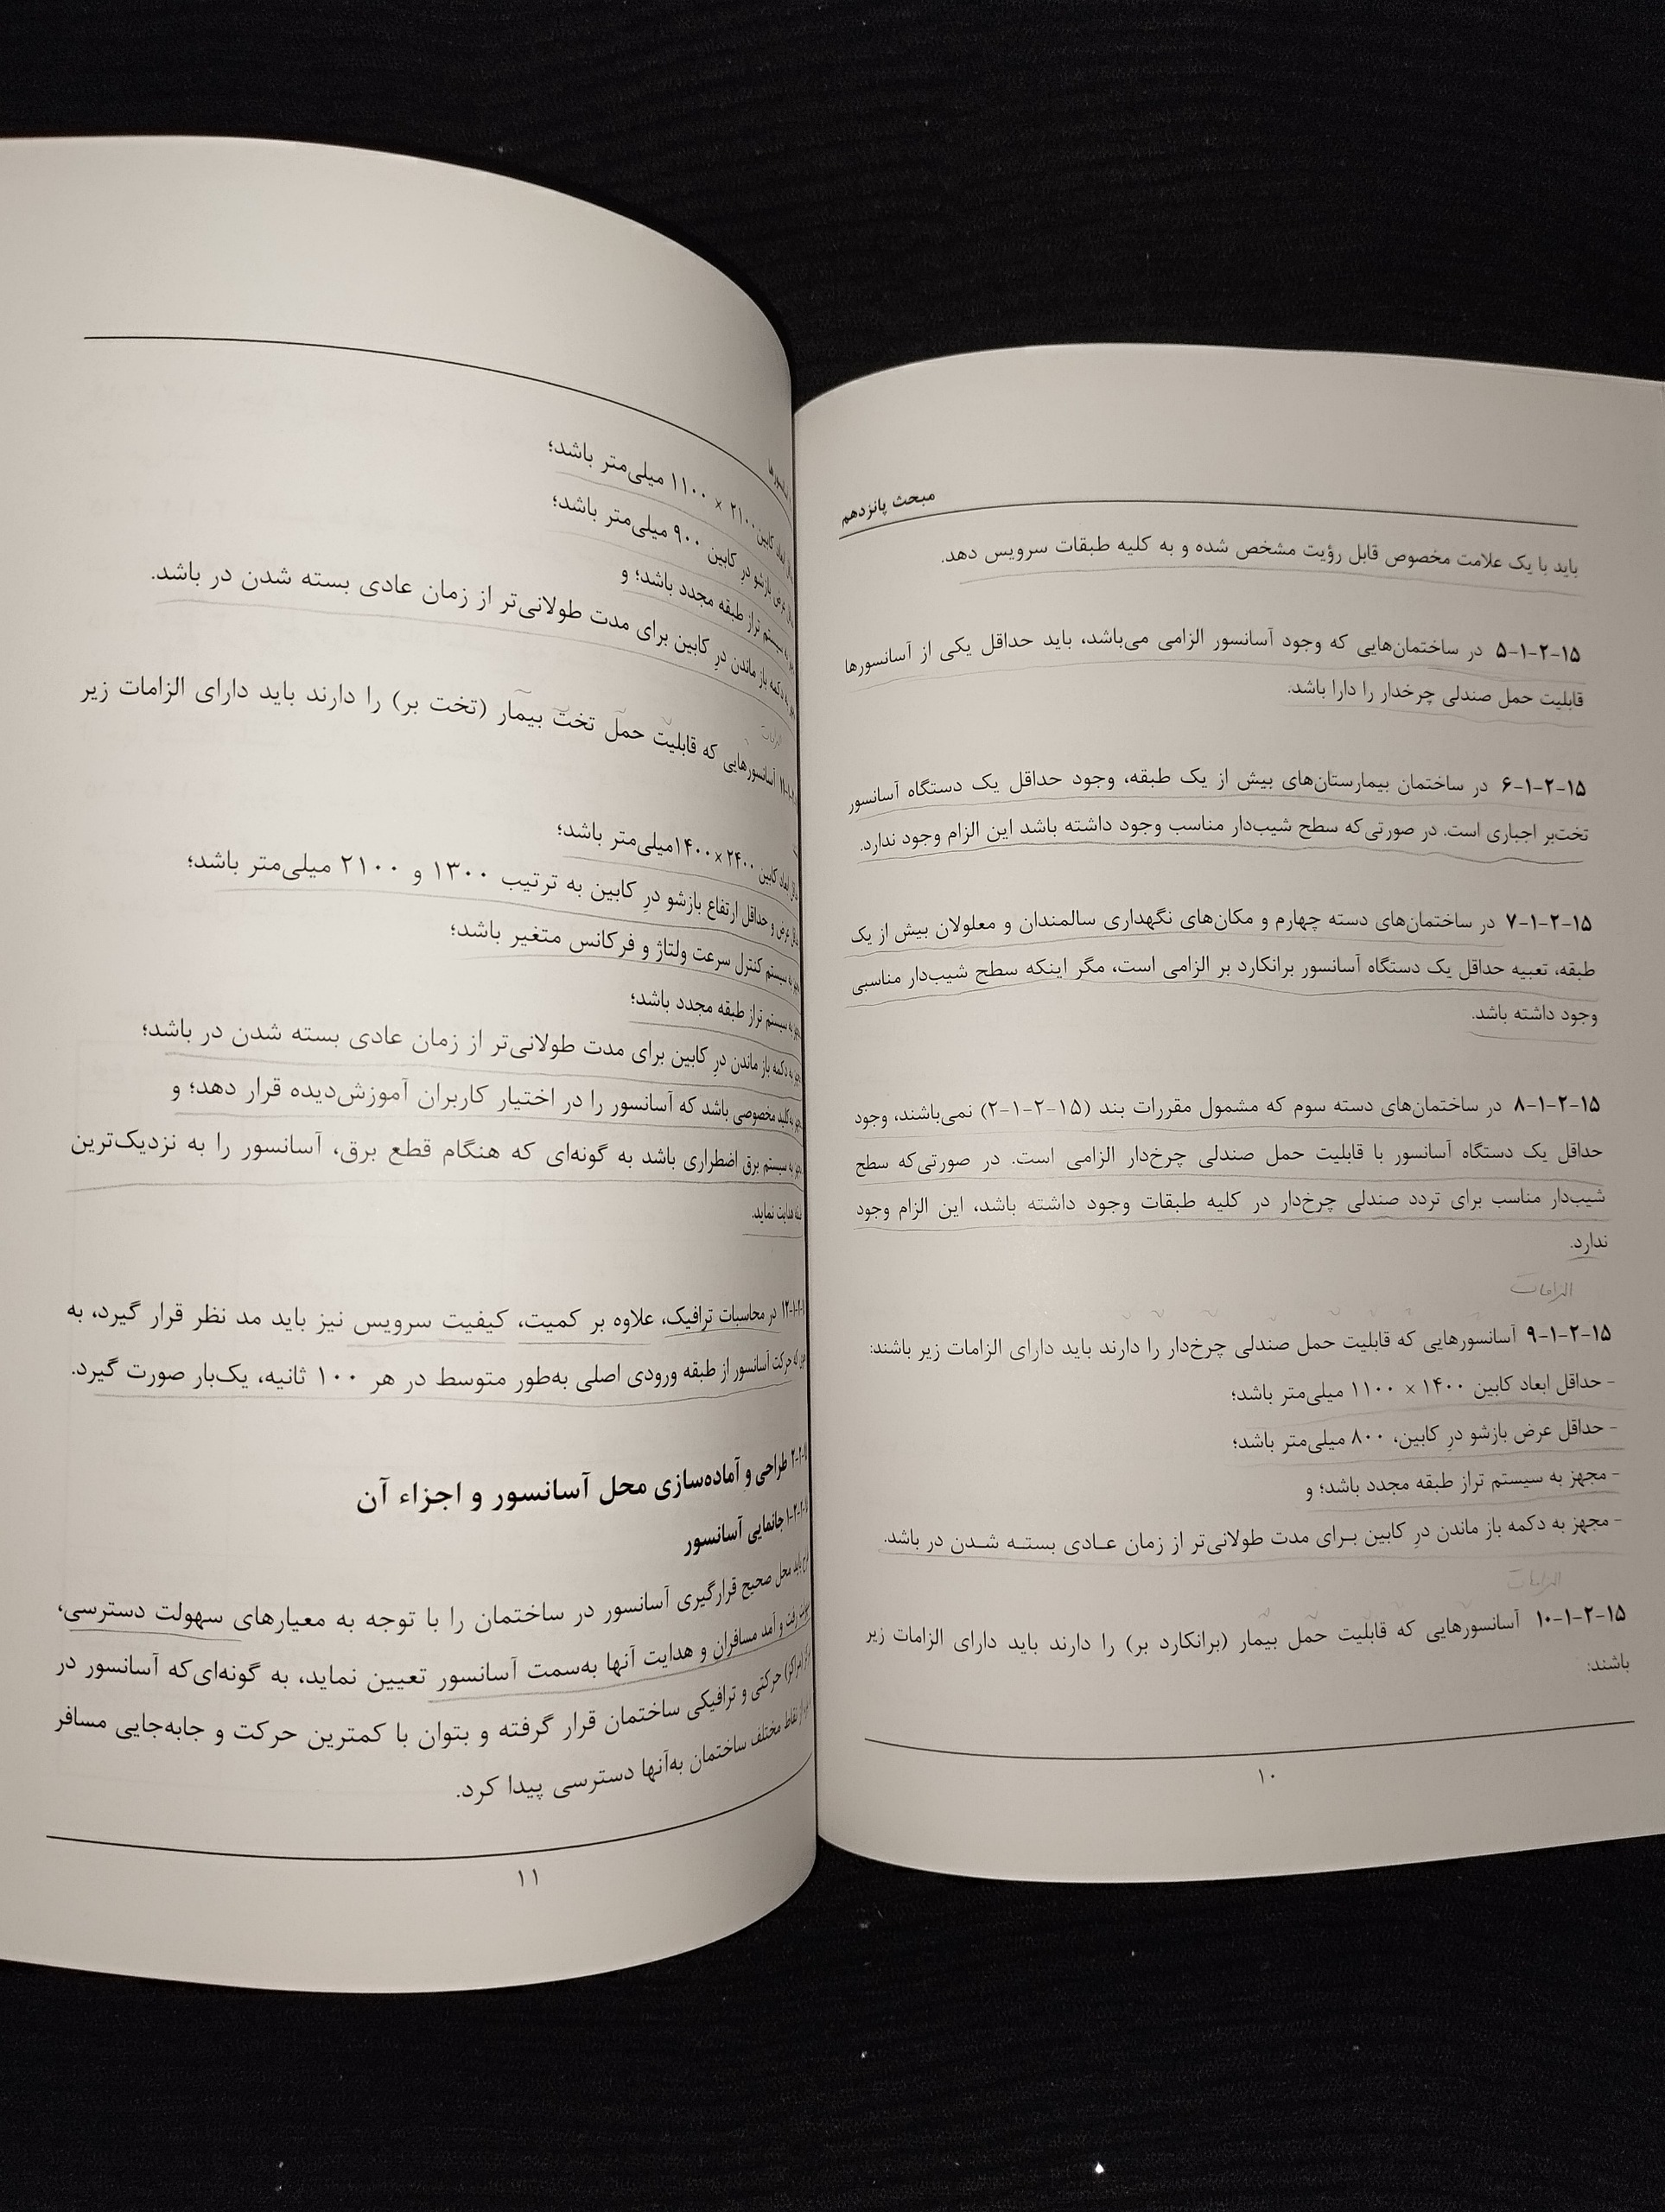 مبحث پانزدهم
باید با یک علامت مخصوص قابل رؤیت مشخص شده و به کلیه طبقات سرویس دهد.
۱۵-۲-۱-۵ در ساختمان‌هایی که وجود آسانسور الزامی می‌باشد، باید حداقل یکی از آسانسورها
قابلیت حمل صندلی چرخدار را دارا باشد.
۱۵-۲-۱-۶ در ساختمان بیمارستان‌های بیش از یک طبقه، وجود حداقل یک دستگاه آسانسور
تخت‌بر اجباری است. در صورتی‌که سطح شیب‌دار مناسب وجود داشته باشد این الزام وجود ندارد.
۱۵-۲-۱-۷ در ساختمان‌های دسته چهارم و مکان‌های نگهداری سالمندان و معلولان بیش از یک
طبقه، تعبیه حداقل یک دستگاه آسانسور برانکارد بر الزامی است، مگر اینکه سطح شیب‌دار مناسبی
وجود داشته باشد.
۱۵-۲-۱-۸ در ساختمان‌های دسته سوم که مشمول مقررات بند (۱۵-۲-۱-۲) نمی‌باشند، وجود
حداقل یک دستگاه آسانسور با قابلیت حمل صندلی چرخ‌دار الزامی است. در صورتی‌که سطح
شیب‌دار مناسب برای تردد صندلی چرخ‌دار در کلیه طبقات وجود داشته باشد، این الزام وجود
ندارد.
الزامات
۱۵-۲-۱-۹ آسانسورهایی که قابلیت حمل صندلی چرخ‌دار را دارند باید دارای الزامات زیر باشند:
- حداقل ابعاد کابین ۱۴۰۰ × ۱۱۰۰ میلی‌متر باشد؛
- حداقل عرض بازشو درِ کابین، ۸۰۰ میلی‌متر باشد؛
- مجهز به سیستم تراز طبقه مجدد باشد؛ و
- مجهز به دکمه باز ماندن درِ کابین برای مدت طولانی‌تر از زمان عادی بسته شدن در باشد.
الزامات
۱۵-۲-۱-۱۰ آسانسورهایی که قابلیت حمل بیمار (برانکارد بر) را دارند باید دارای الزامات زیر
باشند:
۱۰
ابعاد کابین ۲۱۰۰ × ۱۱۰۰ میلی‌متر باشد؛
عرض بازشو درِ کابین ۹۰۰ میلی‌متر باشد؛
سیستم تراز طبقه مجدد باشد؛ و
دکمه باز ماندن درِ کابین برای مدت طولانی‌تر از زمان عادی بسته شدن در باشد.
الزامات
آسانسورهایی که قابلیت حمل تخت بیمار (تخت بر) را دارند باید دارای الزامات زیر
ابعاد کابین ۲۴۰۰×۱۴۰۰میلی‌متر باشد؛
عرض و حداقل ارتفاع بازشو درِ کابین به ترتیب ۱۳۰۰ و ۲۱۰۰ میلی‌متر باشد؛
به سیستم کنترل سرعت ولتاژ و فرکانس متغیر باشد؛
به سیستم تراز طبقه مجدد باشد؛
به دکمه باز ماندن درِ کابین برای مدت طولانی‌تر از زمان عادی بسته شدن در باشد؛
به کلید مخصوصی باشد که آسانسور را در اختیار کاربران آموزش‌دیده قرار دهد؛ و
به سیستم برق اضطراری باشد به گونه‌ای که هنگام قطع برق، آسانسور را به نزدیک‌ترین
هدایت نماید.
در محاسبات ترافیک، علاوه بر کمیت، کیفیت سرویس نیز باید مد نظر قرار گیرد، به
حرکت آسانسور از طبقه ورودی اصلی به‌طور متوسط در هر ۱۰۰ ثانیه، یک‌بار صورت گیرد.
طراحی و آماده‌سازی محل آسانسور و اجزاء آن
جانمایی آسانسور
باید محل صحیح قرارگیری آسانسور در ساختمان را با توجه به معیارهای سهولت دسترسی،
رفت و آمد مسافران و هدایت آنها به‌سمت آسانسور تعیین نماید، به گونه‌ای‌که آسانسور در
حرکتی و ترافیکی ساختمان قرار گرفته و بتوان با کمترین حرکت و جابه‌جایی مسافر
نقاط مختلف ساختمان به‌آنها دسترسی پیدا کرد.
۱۱